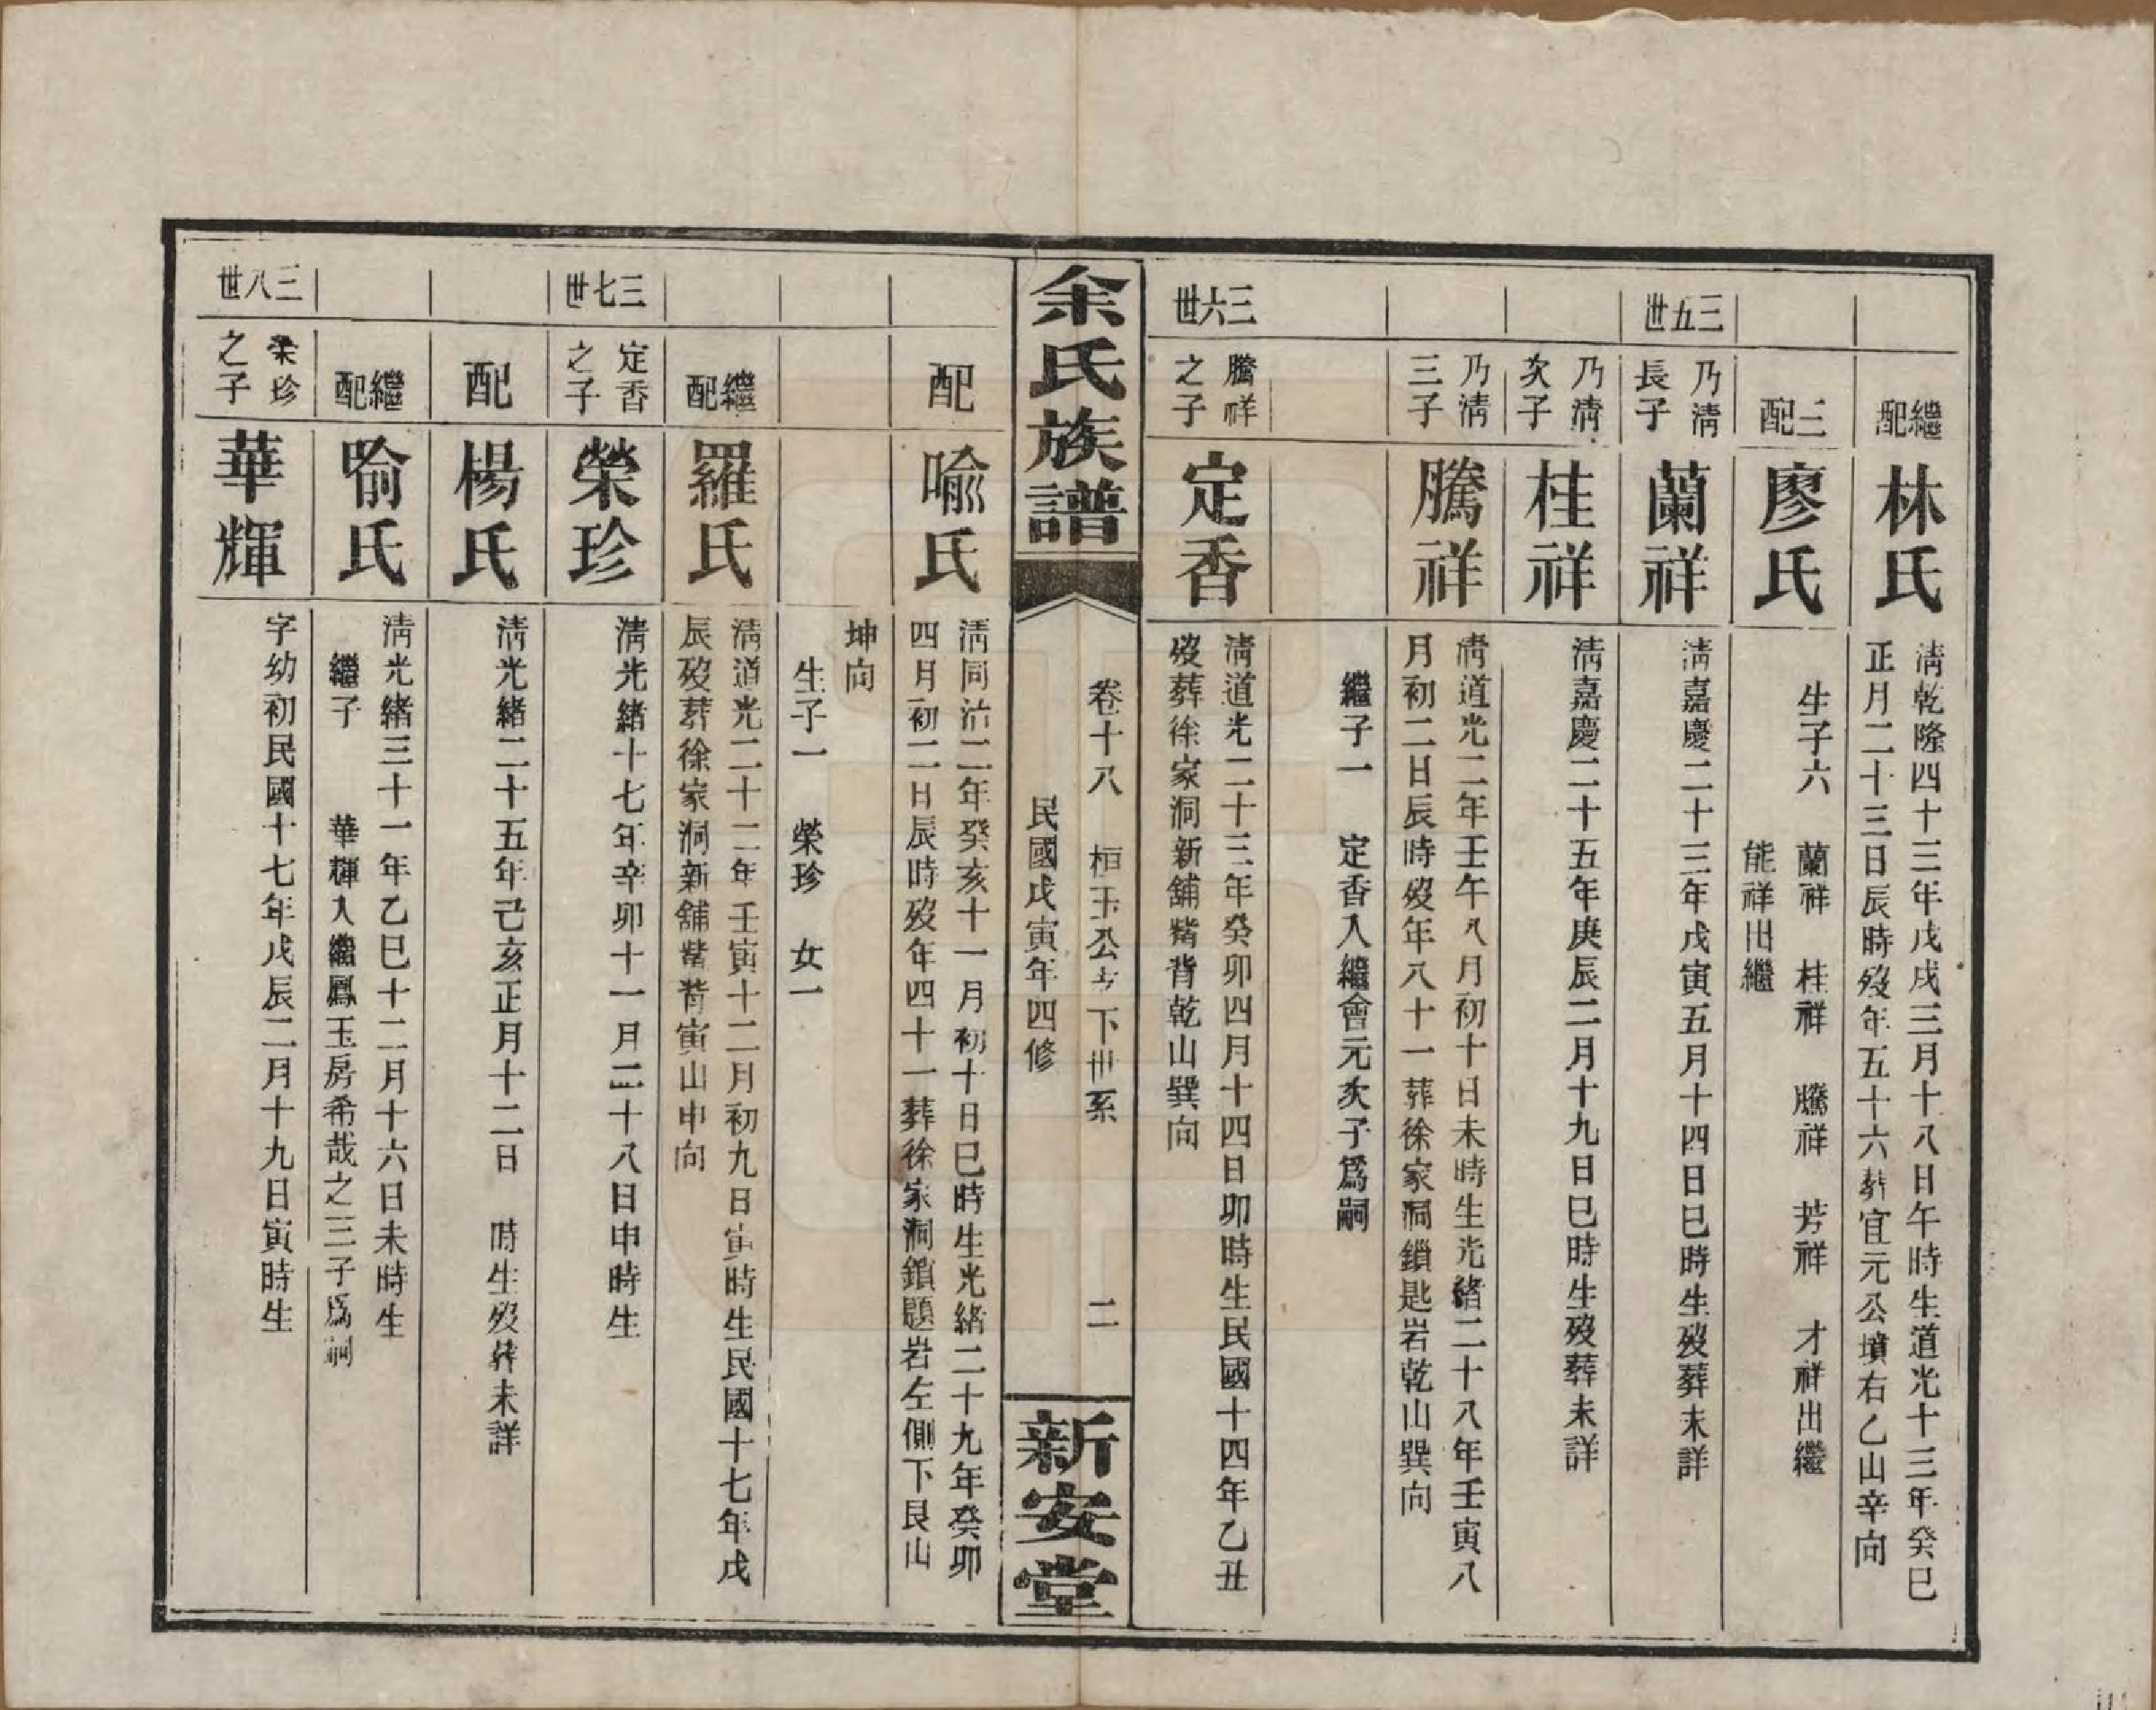 繼配
林氏
淸乾隆四十三年戊戌三月十八日午時生道光十三年癸巳
正月二十三日辰時歿年五十六葬宜元公墳右乙山辛向
三配
廖氏
生子六　蘭祥　桂祥　騰祥　芳祥　才祥出繼
能祥出繼
三五世
乃淸
長子
蘭祥
淸嘉慶二十三年戊寅五月十四日巳時生歿葬未詳
乃淸
次子
桂祥
淸嘉慶二十五年庚辰二月十九日巳時生歿葬未詳
乃淸
三子
騰祥
淸道光二年壬午八月初十日未時生光緒二十八年壬寅八
月初二日辰時歿年八十一葬徐家洞鎖匙岩乾山巽向
繼子一　定香入繼會元次子爲嗣
三六世
騰祥
之子
定香
淸道光二十三年癸卯四月十四日卯時生民國十四年乙丑
歿葬徐家洞新舖觜背乾山巽向
余氏族譜
卷十八　桓玉公支下世系
二
民國戊寅年四修
新安堂
配
喩氏
淸同治二年癸亥十一月初十日巳時生光緒二十九年癸卯
四月初二日辰時歿年四十一葬徐家洞鎖題岩左側下艮山
坤向
生子一　榮珍　女一
繼配
羅氏
淸道光二十二年壬寅十二月初九日寅時生民國十七年戊
辰歿葬徐家洞新舖觜背寅山申向
三七世
定香
之子
榮珍
淸光緒十七年辛卯十一月二十八日申時生
配
楊氏
淸光緒二十五年己亥正月十二日　時生歿葬未詳
繼配
喻氏
淸光緒三十一年乙巳十二月十六日未時生
繼子　華輝入繼鳳玉房希哉之三子爲嗣
三八世
榮珍
之子
華輝
字幼初民國十七年戊辰二月十九日寅時生